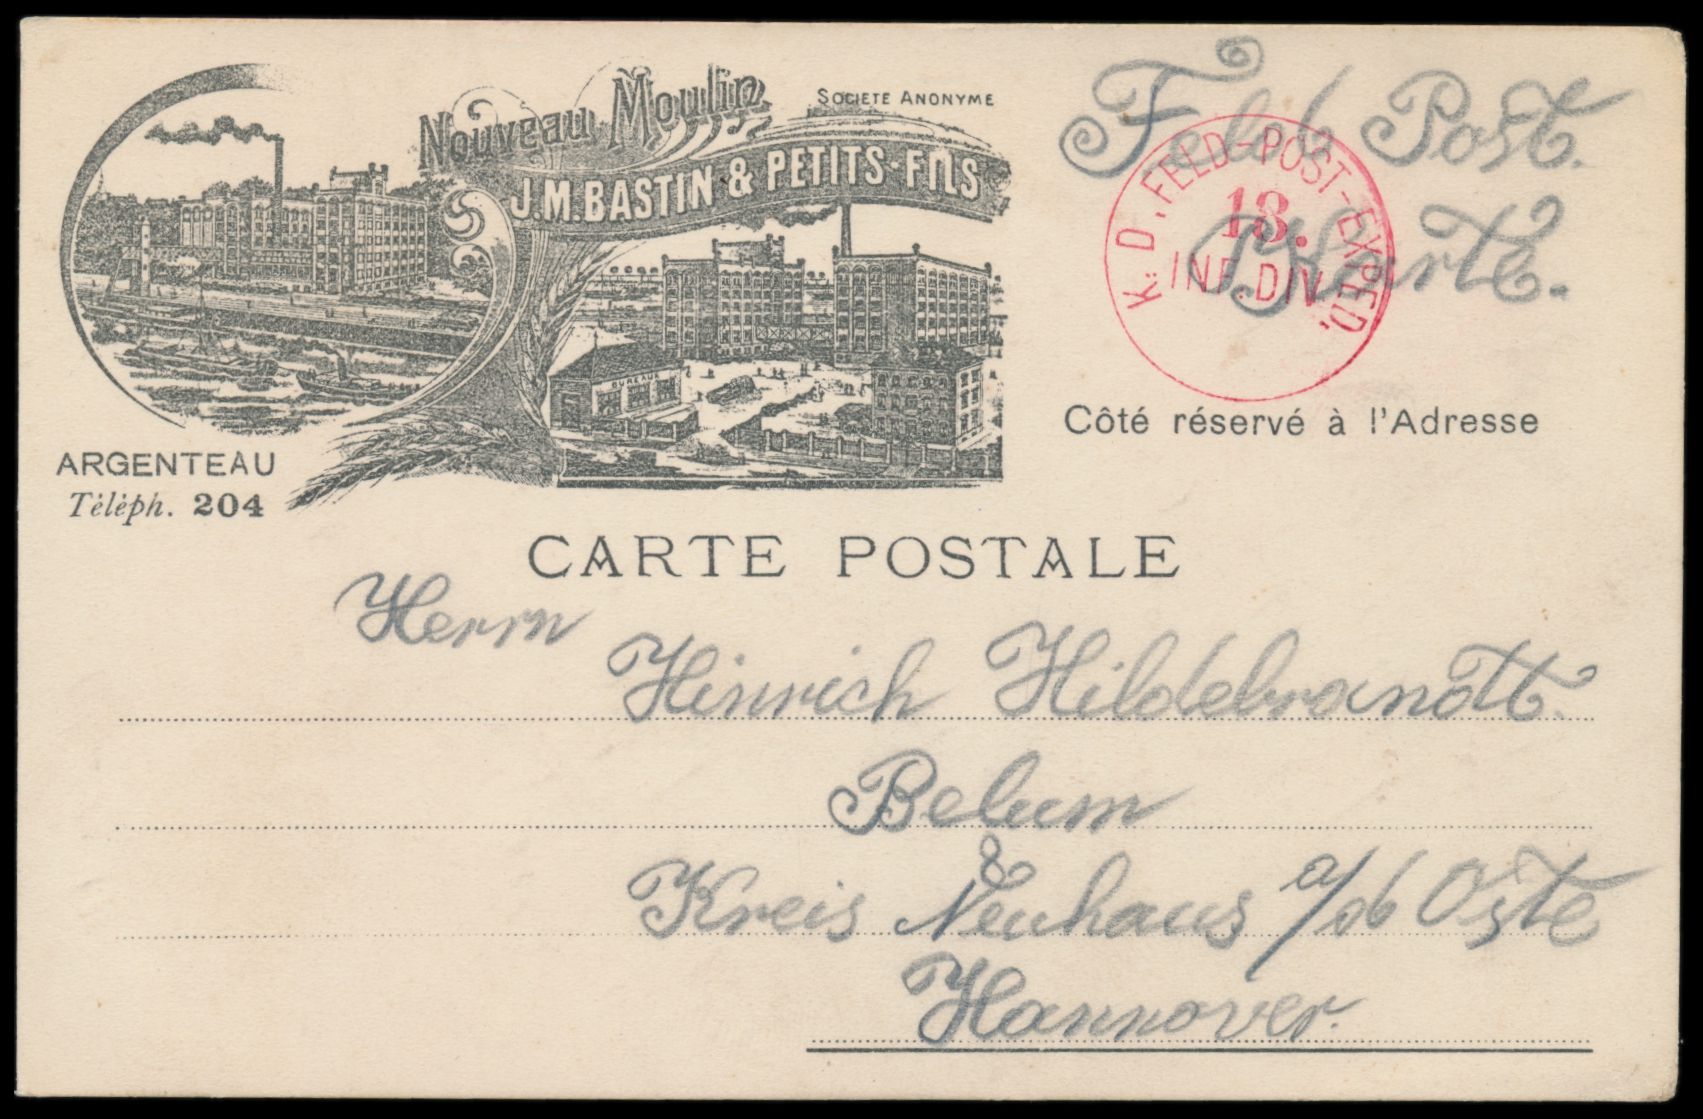 Nouveau Moulin
SOCIETE ANONYME
J.M. BASTIN & PETITS-FILS
BUREAUX
ARGENTEAU
Téléph. 204
Feld Post.
Karte.
K. D. FELD-POST-EXPED.
13.
INF. DIV.
Côté réservé à l'Adresse
CARTE POSTALE
Herrn
Hinrich Hildebrandt.
Belum
Kreis Neuhaus a/d Oste
Hannover.